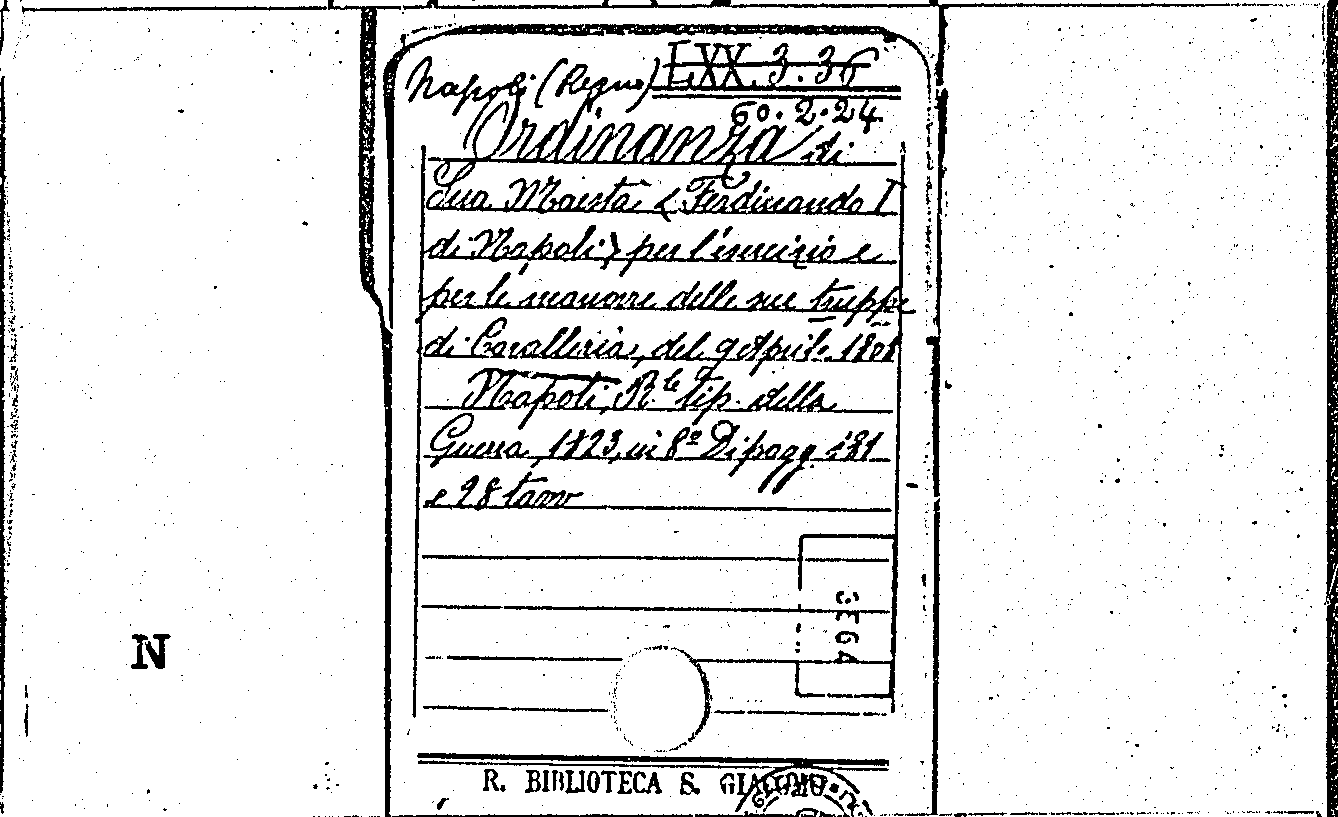 Napoli (Regno) LXX.3.36
60.2.24
Ordinanza di
Sua Maestà (Ferdinando I
di Napoli) per l'esercizio e
per le manovre delle sue truppe
di Cavalleria, del 9 Aprile 1801
Napoli, R.le tip. della
Guerra, 1823, in 8º Di pagg. 181
e 28 tavv
N
R. BIBLIOTECA S. GIACOMO